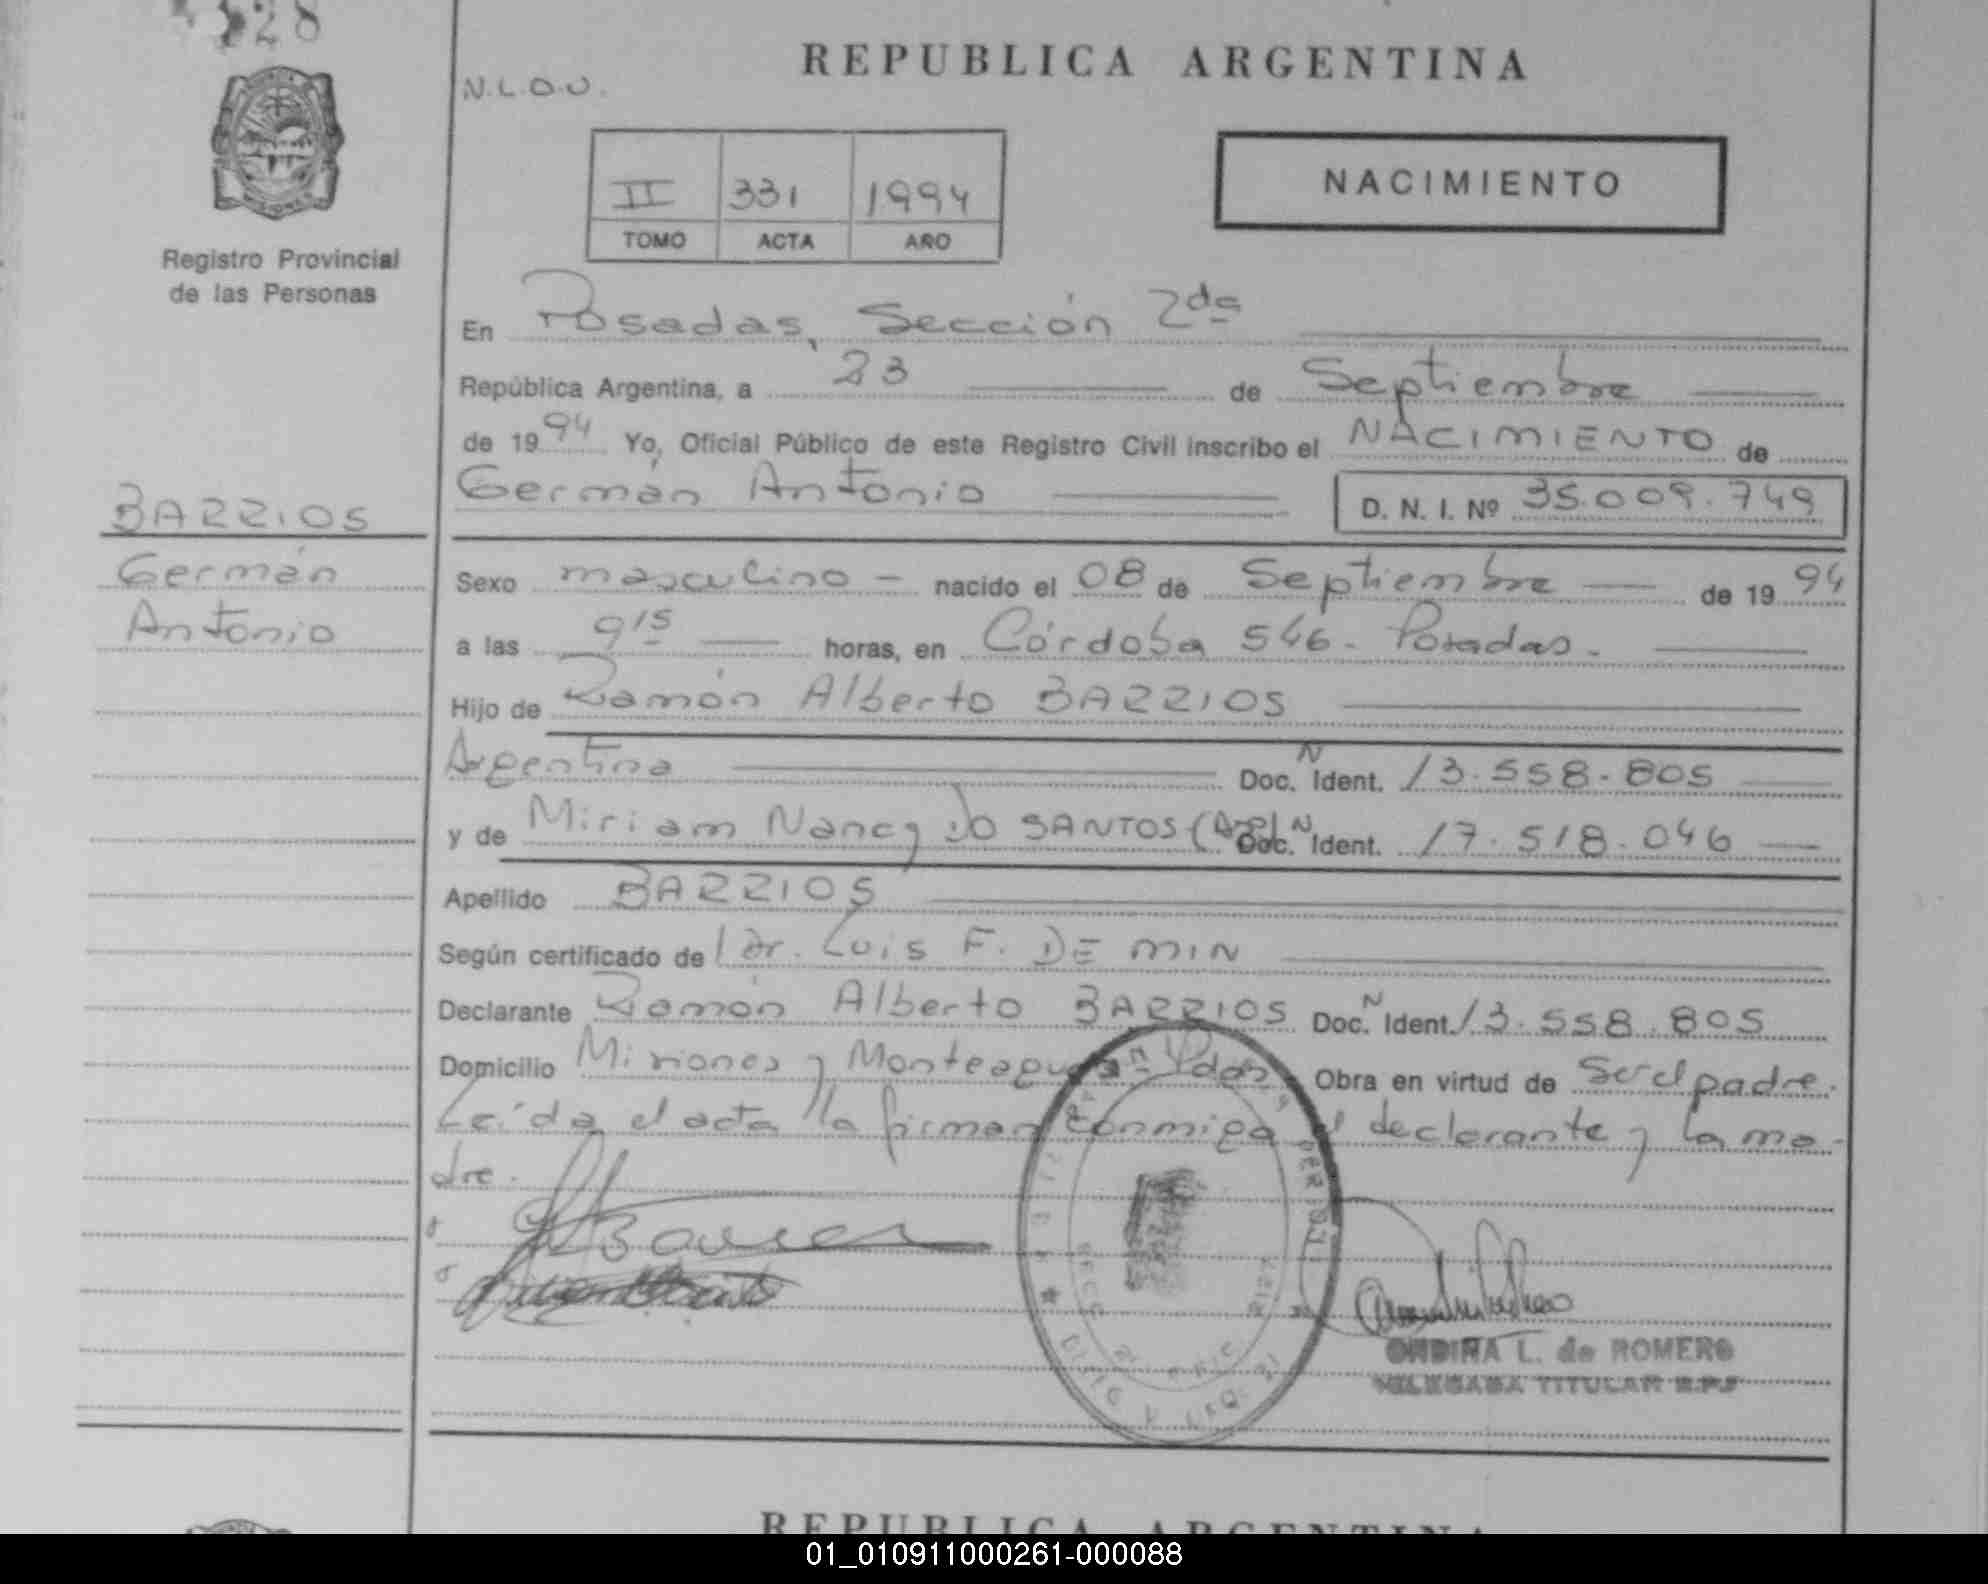 328
REPUBLICA ARGENTINA
N.L.O.U.
II 331 1994
TOMO ACTA AÑO
NACIMIENTO
Registro Provincial
de las Personas
En Posadas, Sección 2da
República Argentina, a 23 de Septiembre
de 1994 Yo, Oficial Público de este Registro Civil inscribo el NACIMIENTO de
Germán Antonio D. N. I. Nº 35.009.749
BARRIOS
Germán
Antonio
Sexo masculino - nacido el 08 de Septiembre de 1994
a las 9 15 horas, en Córdoba 546 - Posadas.
Hijo de Ramón Alberto BARRIOS
Argentina Doc. N Ident. 13.558.805
y de Miriam Nancy DO SANTOS (Arg) Doc. N Ident. 17.518.046
Apellido BARRIOS
Según certificado de l Dr. Luis F. DE MIN
Declarante Ramón Alberto BARRIOS Doc. N Ident. 13.558.805
Domicilio Misiones y Monteagudo Pdas Obra en virtud de Ser el padre.
Leída el acta la firman conmigo el declarante y la ma-
dre.
ONDINA L. de ROMERO
DELEGADA TITULAR R.P.P.
REPUBLICA ARGENTINA
01_010911000261-000088